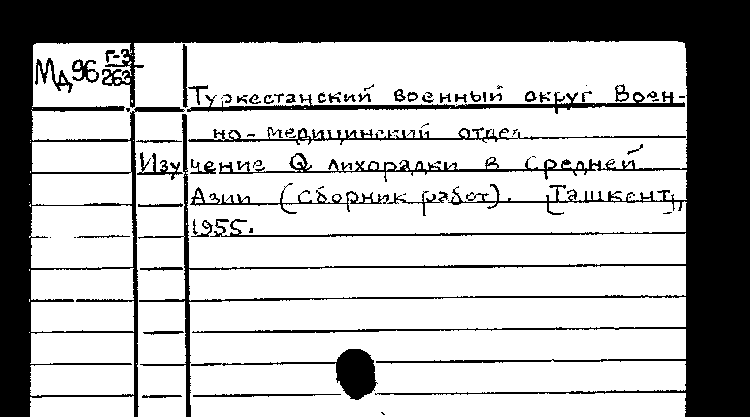 Мд96 Г-3/263
Туркестанский военный округ Воен-
но-медицинский отдел
Изучение Q лихорадки в Средней
Азии (сборник работ). [Ташкент],
1955.